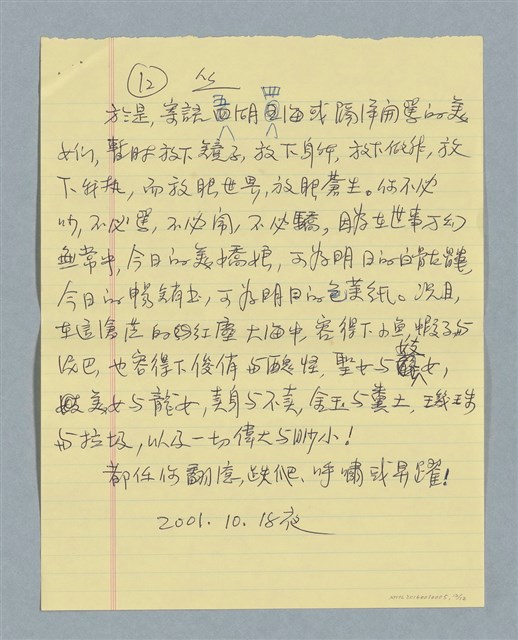 12
於是,寄語五胡四海或隔洋開罵的美
女們,暫時放下鏡子,放下身段,放下做作,放
下 而放眼世界,放眼蒼生。你不必
吵,不必罵,不必鬧,不必驕,因為在世事万幻
無常中,今日的美嬌娘,可為明日的白骷髏,
今日的暢銷書,可為明日的色葉紙。況且,
在這蒼茫的紅塵大海中,容得下小魚、蝦子与
泥巴,也容得下俊俏与醜怪,聖女与妓女,
美女与龍女,賣身与不賣,金玉与糞土,璣珠
与垃圾,以及一切偉大与眇小!
都任你翻滾,跌爬、呼嘯或昇躍!
2001.10.18夜